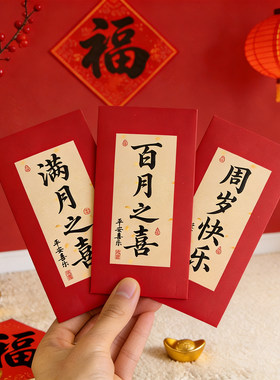 福
满月之喜
平安喜乐
百月之喜
平安喜乐
周岁快乐
福